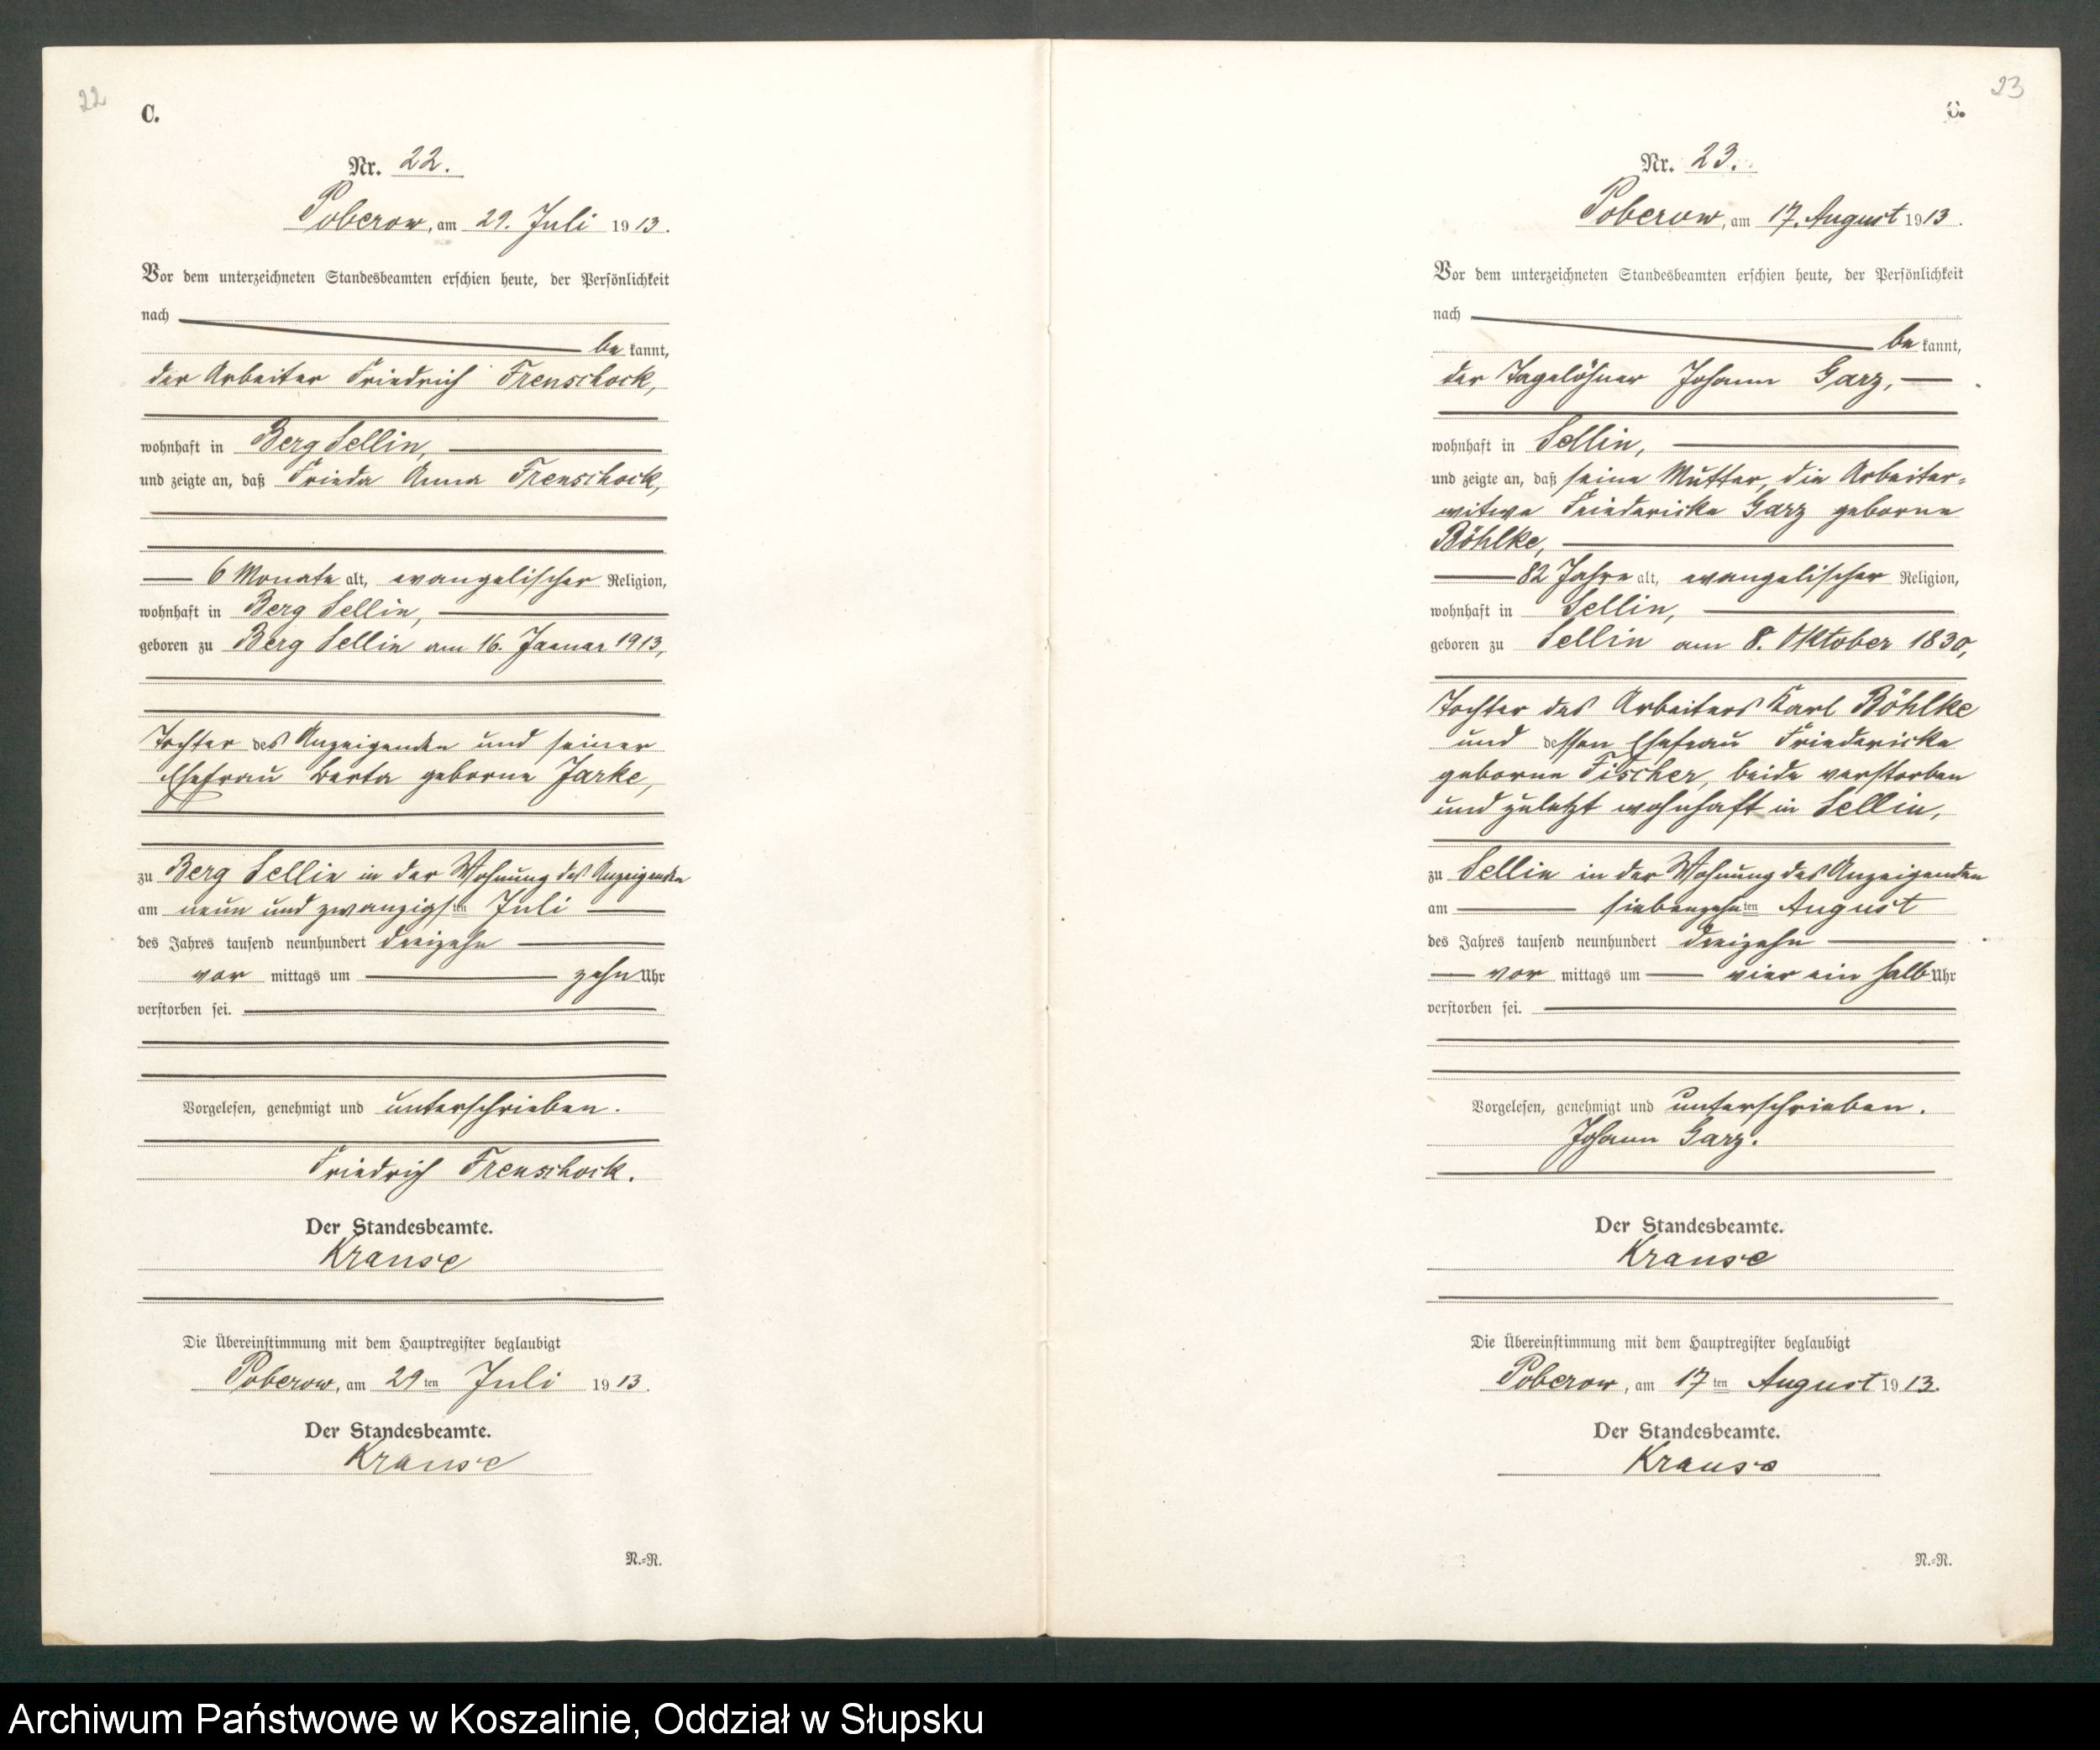 22
C.
Nr. 22.
Poberow, am 29. Juli 1913.
Vor dem unterzeichneten Standesbeamten erschien heute, der Persönlichkeit
nach
be kannt,
der Arbeiter Friedrich Frenschock,
wohnhaft in Berg Sellin,
und zeigte an, daß Frieda Anna Frenschock,
6 Monate alt, evangelischer Religion,
wohnhaft in Berg Sellin,
geboren zu Berg Sellin am 16. Januar 1913,
Tochter des Anzeigenden und seiner
Ehefrau Berta geborne Jarke,
zu Berg Sellin in der Wohnung des Anzeigenden
am neun und zwanzigsten Juli
des Jahres tausend neunhundert dreizehn
vor mittags um zehn Uhr
verstorben sei.
Vorgelesen, genehmigt und unterschrieben.
Friedrich Frenschock.
Der Standesbeamte.
Krause
Die Übereinstimmung mit dem Hauptregister beglaubigt
Poberow, am 29ten Juli 1913.
Der Standesbeamte.
Krause
N.=R.
23
C.
Nr. 23.
Poberow, am 17. August 1913.
Vor dem unterzeichneten Standesbeamten erschien heute, der Persönlichkeit
nach
be kannt,
der Tagelöhner Johann Garz,
wohnhaft in Sellin,
und zeigte an, daß seine Mutter, die Arbeiter=
witwe Friedericke Garz geborne
Böhlke,
82 Jahre alt, evangelischer Religion,
wohnhaft in Sellin,
geboren zu Sellin am 8. Oktober 1830,
Tochter des Arbeiters Karl Böhlke
und dessen Ehefrau Friedericke
geborne Fischer, beide verstorben
und zuletzt wohnhaft in Sellin,
zu Sellin in der Wohnung des Anzeigenden
am siebenzehnten August
des Jahres tausend neunhundert dreizehn
vor mittags um vier ein halb Uhr
verstorben sei.
Vorgelesen, genehmigt und unterschrieben.
Johann Garz.
Der Standesbeamte.
Krause
Die Übereinstimmung mit dem Hauptregister beglaubigt
Poberow, am 17ten August 1913.
Der Standesbeamte.
Krause
N.=R.
Archiwum Państwowe w Koszalinie, Oddział w Słupsku